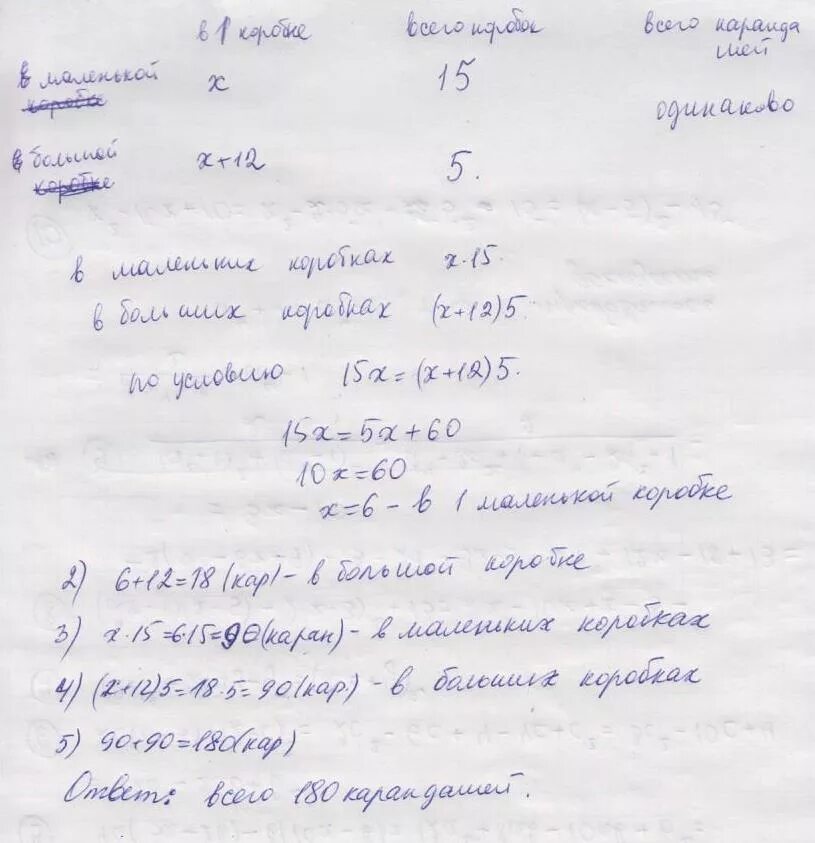 в 1 коробке всего коробок всего каранда
шей
в маленькой х 15
коробке
одинаково
в большой х+12 5.
коробке
в маленьких коробках х·15.
в больших коробках (х+12)5.
по условию 15х=(х+12)5.
15х=5х+60
10х=60
х=6 - в 1 маленькой коробке
2) 6+12=18 (кар) - в большой коробке
3) х·15=6·15=90(каран) - в маленьких коробках
4) (х+12)5=18·5=90(кар.) - в больших коробках
5) 90+90=180(кар)
Ответ: всего 180 карандашей.